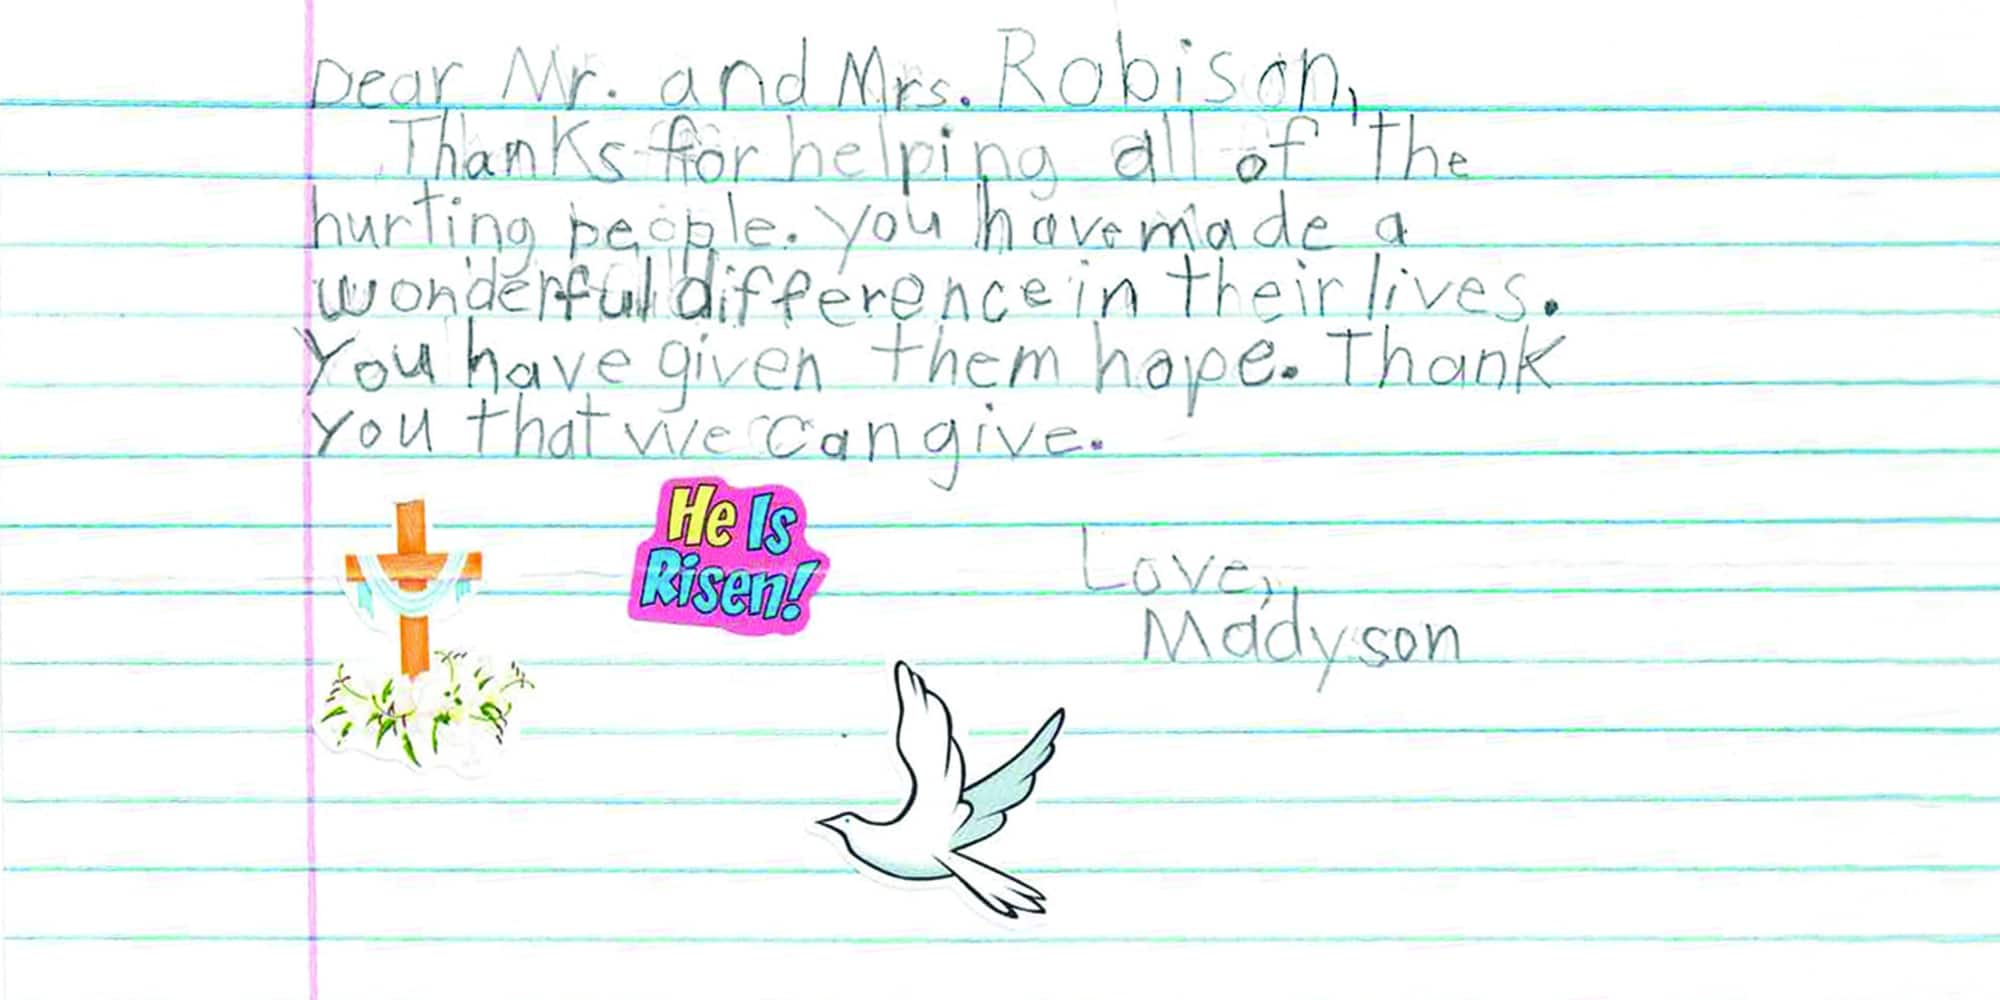 Dear Mr. and Mrs. Robison,
Thanks for helping all of the
hurting people. You have made a
wonderful difference in their lives.
You have given them hope. Thank
you that we can give.
He Is
Risen!
Love,
Madyson